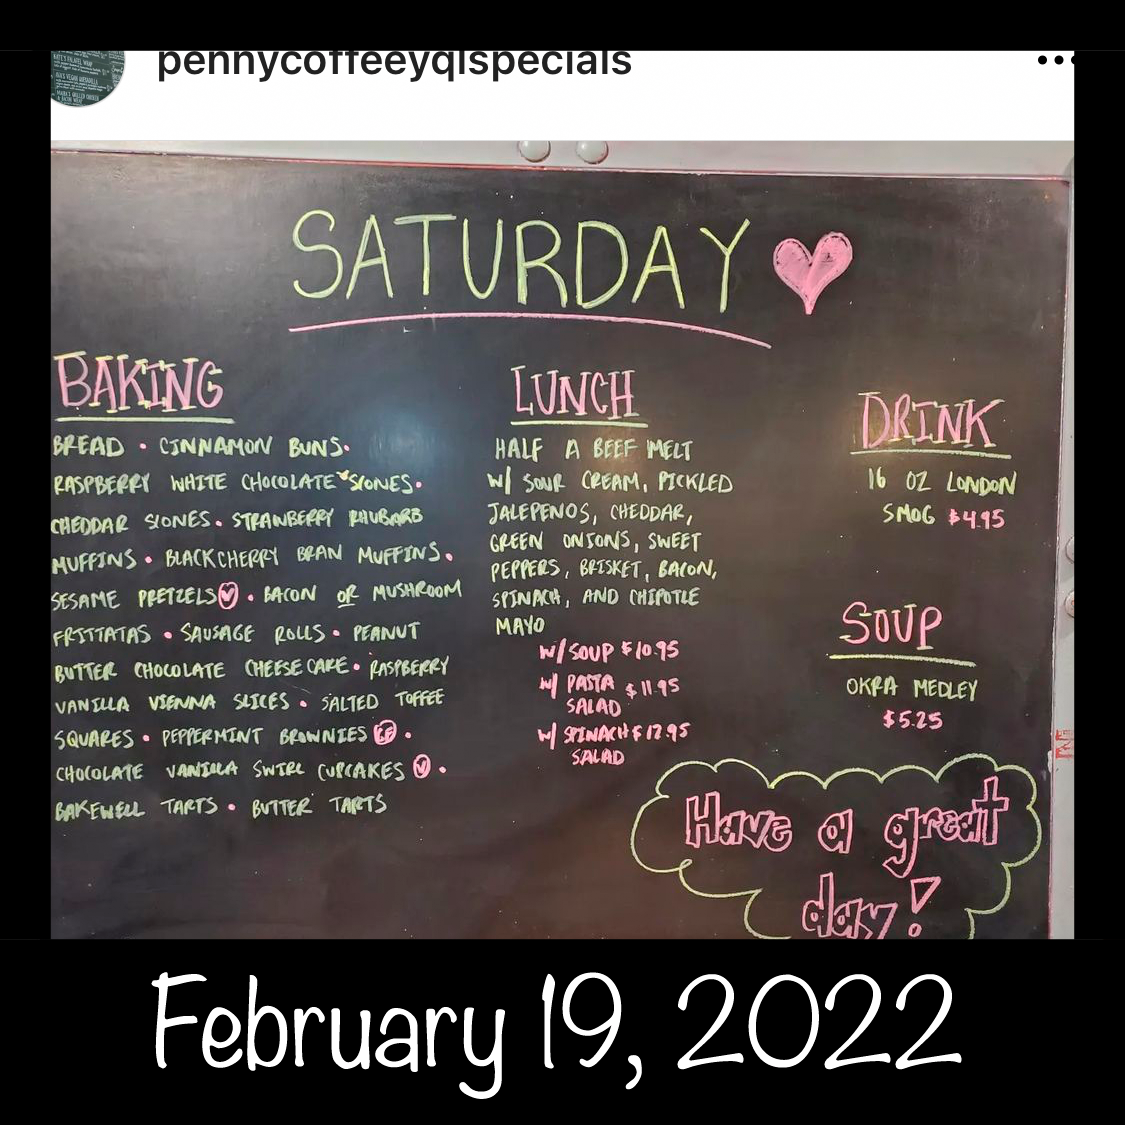 pennycoffeeyqlspecials
SATURDAY
BAKING
BREAD • CINNAMON BUNS •
RASPBERRY WHITE CHOCOLATE SCONES •
CHEDDAR SCONES • STRAWBERRY RHUBARB
MUFFINS • BLACK CHERRY BRAN MUFFINS •
SESAME PRETZELS V • BACON OR MUSHROOM
FRITTATAS • SAUSAGE ROLLS • PEANUT
BUTTER CHOCOLATE CHEESECAKE • RASPBERRY
VANILLA VIENNA SLICES • SALTED TOFFEE
SQUARES • PEPPERMINT BROWNIES GF •
CHOCOLATE VANILLA SWIRL CUPCAKES V •
BAKEWELL TARTS • BUTTER TARTS
LUNCH
HALF A BEEF MELT
W/ SOUR CREAM, PICKLED
JALEPENOS, CHEDDAR,
GREEN ONIONS, SWEET
PEPPERS, BRISKET, BACON,
SPINACH, AND CHIPOTLE
MAYO
W/ SOUP $10.95
W/ PASTA $11.95
SALAD
W/ SPINACH $12.95
SALAD
DRINK
16 OZ LONDON
SMOG $4.95
SOUP
OKRA MEDLEY
$5.25
Have a great
day!
February 19, 2022